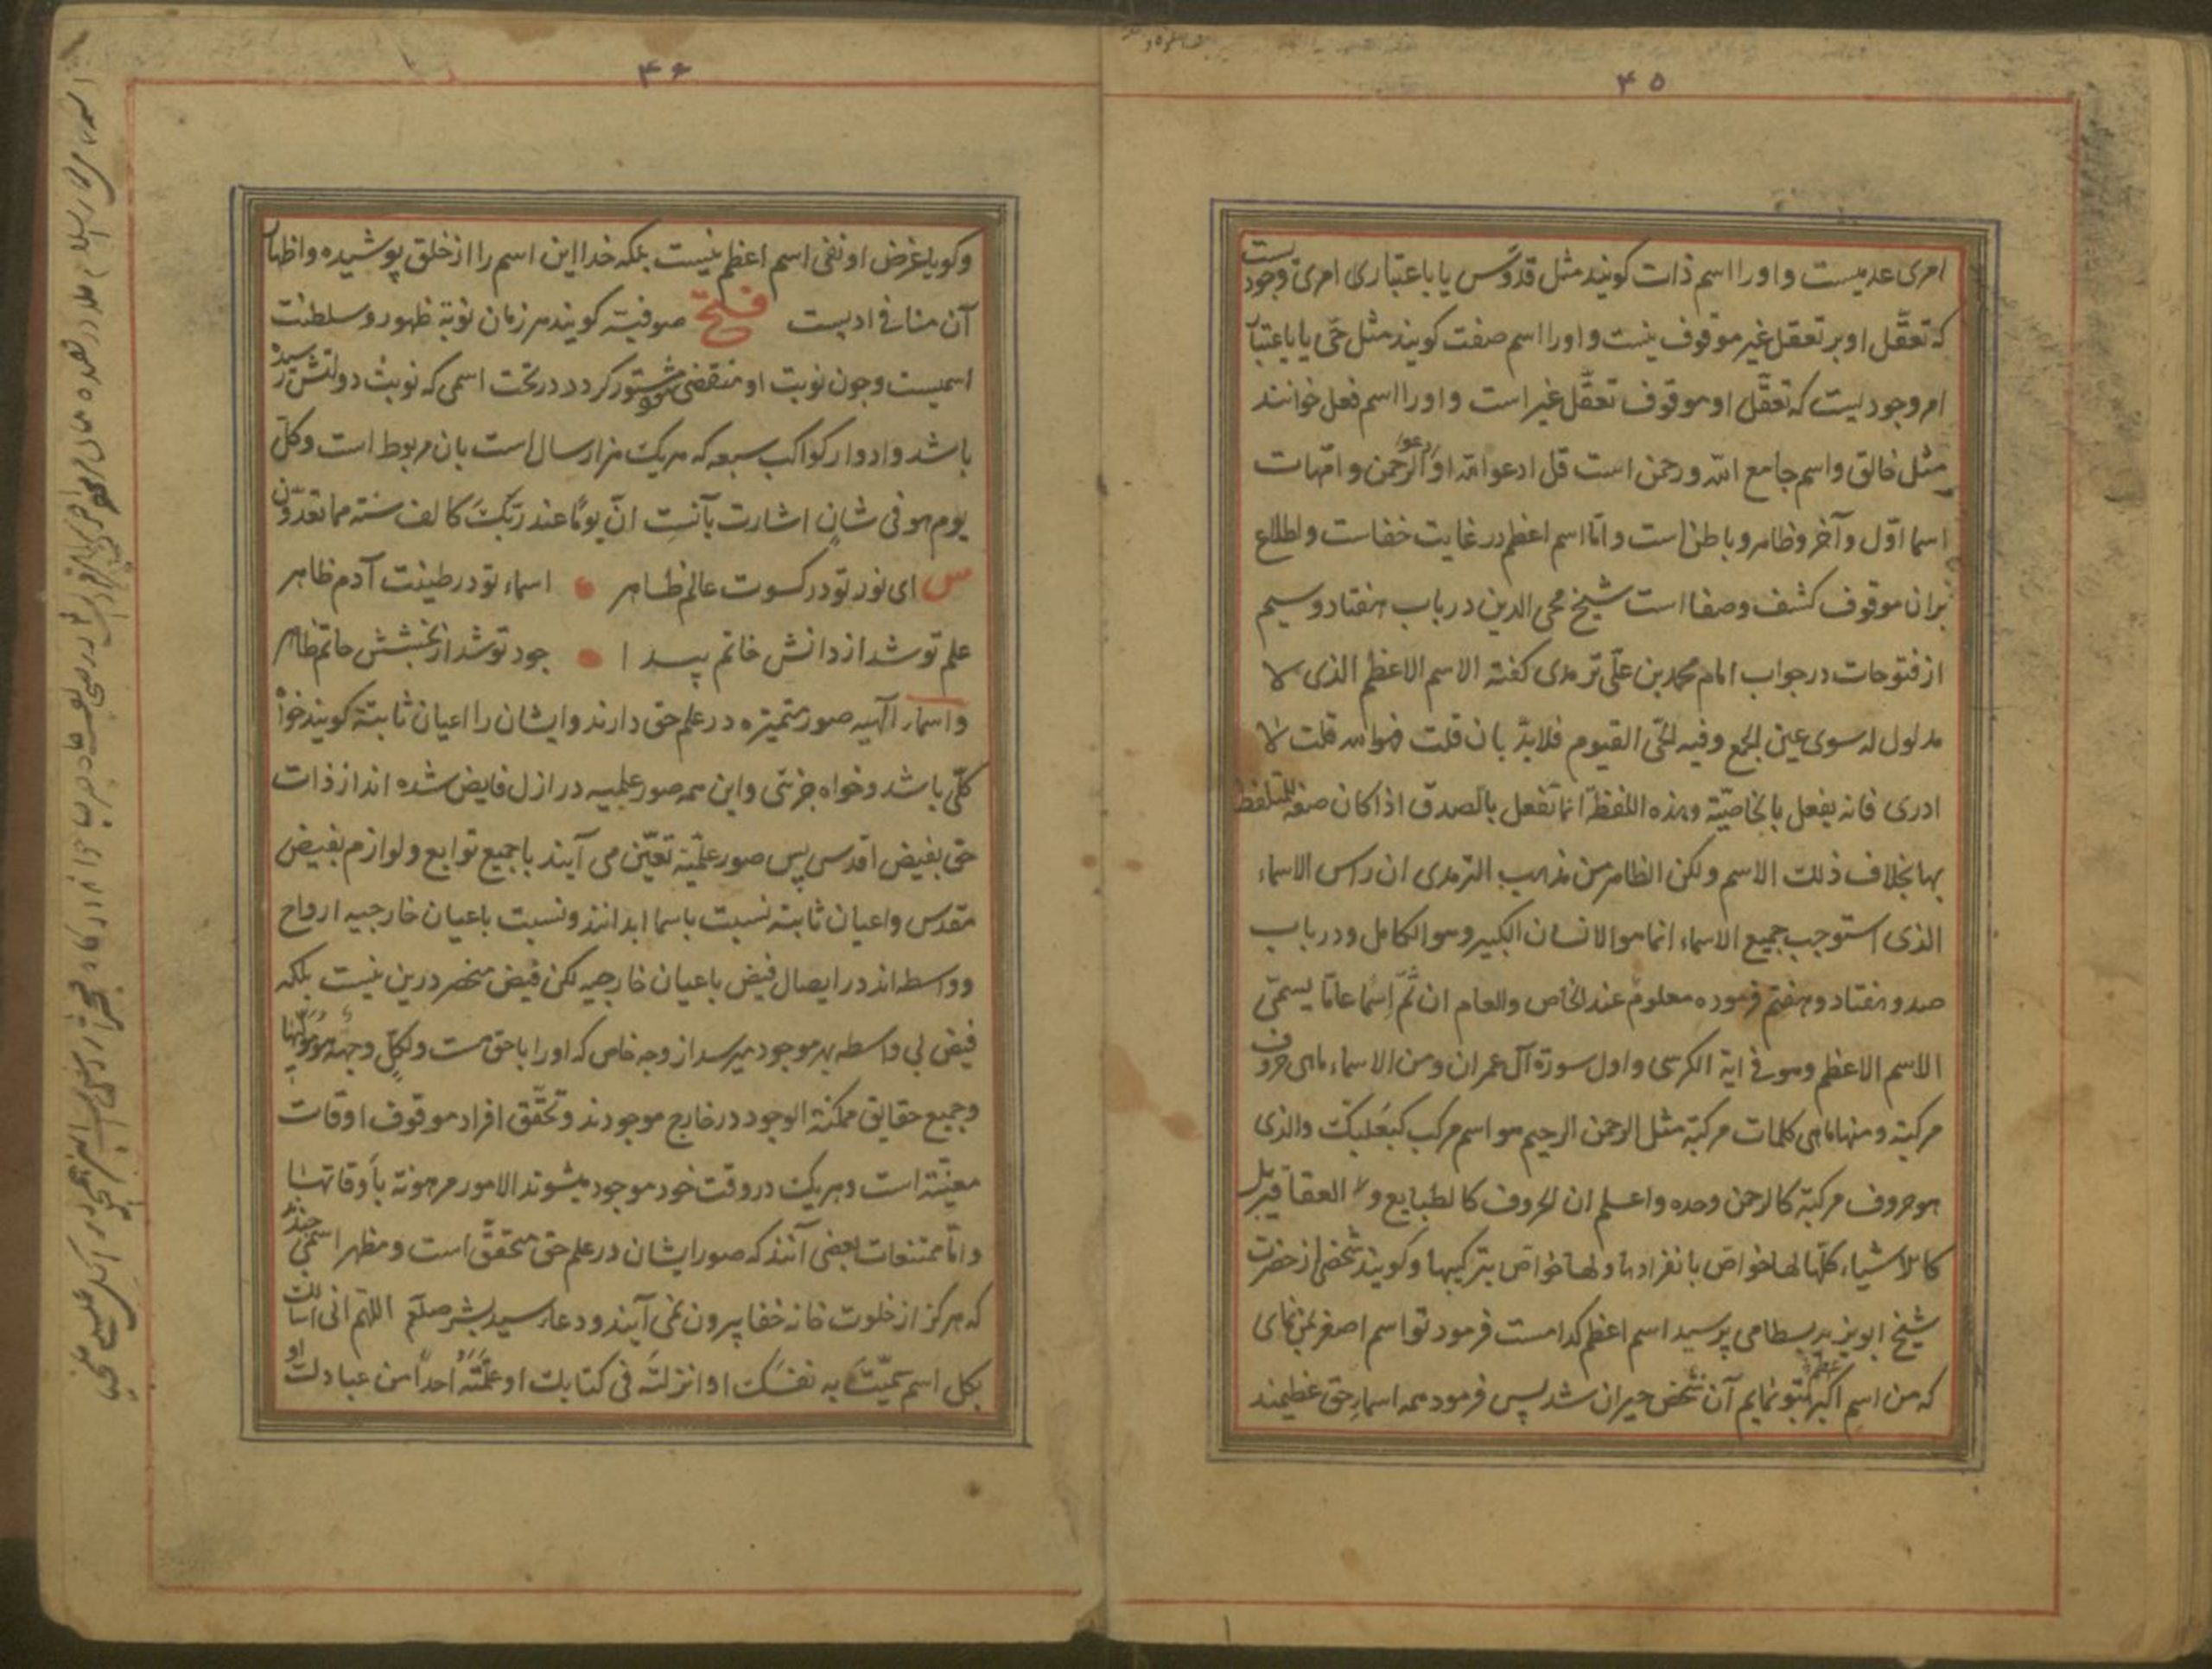 ۴۵
امری عدمیست و اورا اسم ذات کویند مثل قدوس یا باعتباری امری وجودیست
که تعقّل او بر تعقل غیر موقوف نیست و اورا اسم صفت کویند مثل حیّ یا باعتبار
امر وجودیست که تعقّل او موقوف تعقّل غیر است و اورا اسم فعل خوانند
مثل خالق و اسم جامع الله و رحمن است قل ادعوا الله او ادعوا الرّحمن و امّهات
اسما اوّل و آخر و ظاهر و باطن است و امّا اسم اعظم در غایت خفاست و اطلاع
بران موقوف کشف و صفا است شیخ محی الدین در باب هفتاد و سیم
از فتوحات در جواب امام محمد بن علی ترمدی کفته الاسم الاعظم الذی لا
مدلول له سوی عین الجمع و فیه الحیّ القیوم فلابدّ بان قلت فهو الله قلت لا
ادری فانه یفعل بالخاصّیّة و هذه اللفظة انما تفعل بالصدق اذا کان صفة للمتلفظ
بها بخلاف ذلک الاسم ولکن الظاهر من مذهب الترمدی ان راس الاسماء
الذی استوجب جمیع الاسماء انما هو الانسان الکبیر و هو الکامل و در باب
صد و هفتاد و هفتم فرموده معلوم عند الخاص و العام ان ثمّ اسمًا عامّا یسمّی
الاسم الاعظم و هو فی ایة الکرسی و اول سورة آل عمران و من الاسماء ماهی حروف
مرکبة و منها ماهی کلمات مرکبة مثل الرحمن الرحیم هو اسم مرکب کبعلبک و الذی
هو حروف مرکبّة کالرحمن وحده و اعلم ان الحروف کالطبایع و العقاقیر بل
کالاشیاء کلّها لها خواصّ بانفرادها و لها خواصّ بترکیبها و کویند شخصی از حضرت
شیخ ابویزید بسطامی پرسید اسم اعظم کدامست فرمود تو اسم اصغر بمن نمای
که من اسم اکبر بتو نمایم آن شخص حیران شد پس فرمود همه اسماء حق عظیمند
۴۶
و کویا غرض او نفی اسم اعظم نیست بلکه خدا این اسم را از خلق پوشیده و اظهار
آن منافی ادبست فتح صوفیّه کویند هر زمان نوبة ظهور و سلطنت
اسمیست و چون نوبت او منقضی شود مستور کردد در تحت اسمی که نوبت دولتش رسیده
باشد و ادوار کواکب سبعه که هریک هزار سال است بان مربوط است و کلّ
یوم هو فی شان اشارت بآنست انّ یومًا عند ربّکَ کالف سنة مما تعدّون
س ای نور تو در کسوت عالم ظاهر اسماء تو در طینت آدم ظاهر
علم تو شد از دانش خاتم پیدا جود تو شد از بخشش حاتم ظاهر
و اسماء الهیه صور متمیّزه در علم حق دارند و ایشان را اعیان ثابتة کویند خواه
کلّی باشد و خواه جزئی و این همه صور علمیه در ازل فایض شده اند از ذات
حق بفیض اقدس پس صور علمیّه تعیّن می آیند با جمیع توابع و لوازم بفیض
مقدس و اعیان ثابته نسبت باسما ابدانند و نسبت باعیان خارجیه ارواح
و واسطه اند در ایصال فیض باعیان خارجیه لکن فیض منحصر درین نیست بلکه
فیض بی واسطه بهر موجود میرسد از وجه خاص که اورا با حق هست و لکلّ وجهة هو مولّیها
و جمیع حقایق ممکنة الوجود در خارج موجودند و تحقّق افراد موقوف اوقات
معیّنة است و هریک در وقت خود موجود میشوند الامور مرهونة باوقاتها
و امّا ممتنعات بعضی آنند که صور ایشان در علم حق متحقّق است و مظهر اسمی چندند
که هرکز از خلوت خانه خفا بیرون نمی آیند و دعاء سید بشر صلعم اللهم انی اسالک
بکل اسم سمّیت به نفسک او انزلته فی کتابک او علّمته احداً من عبادک او